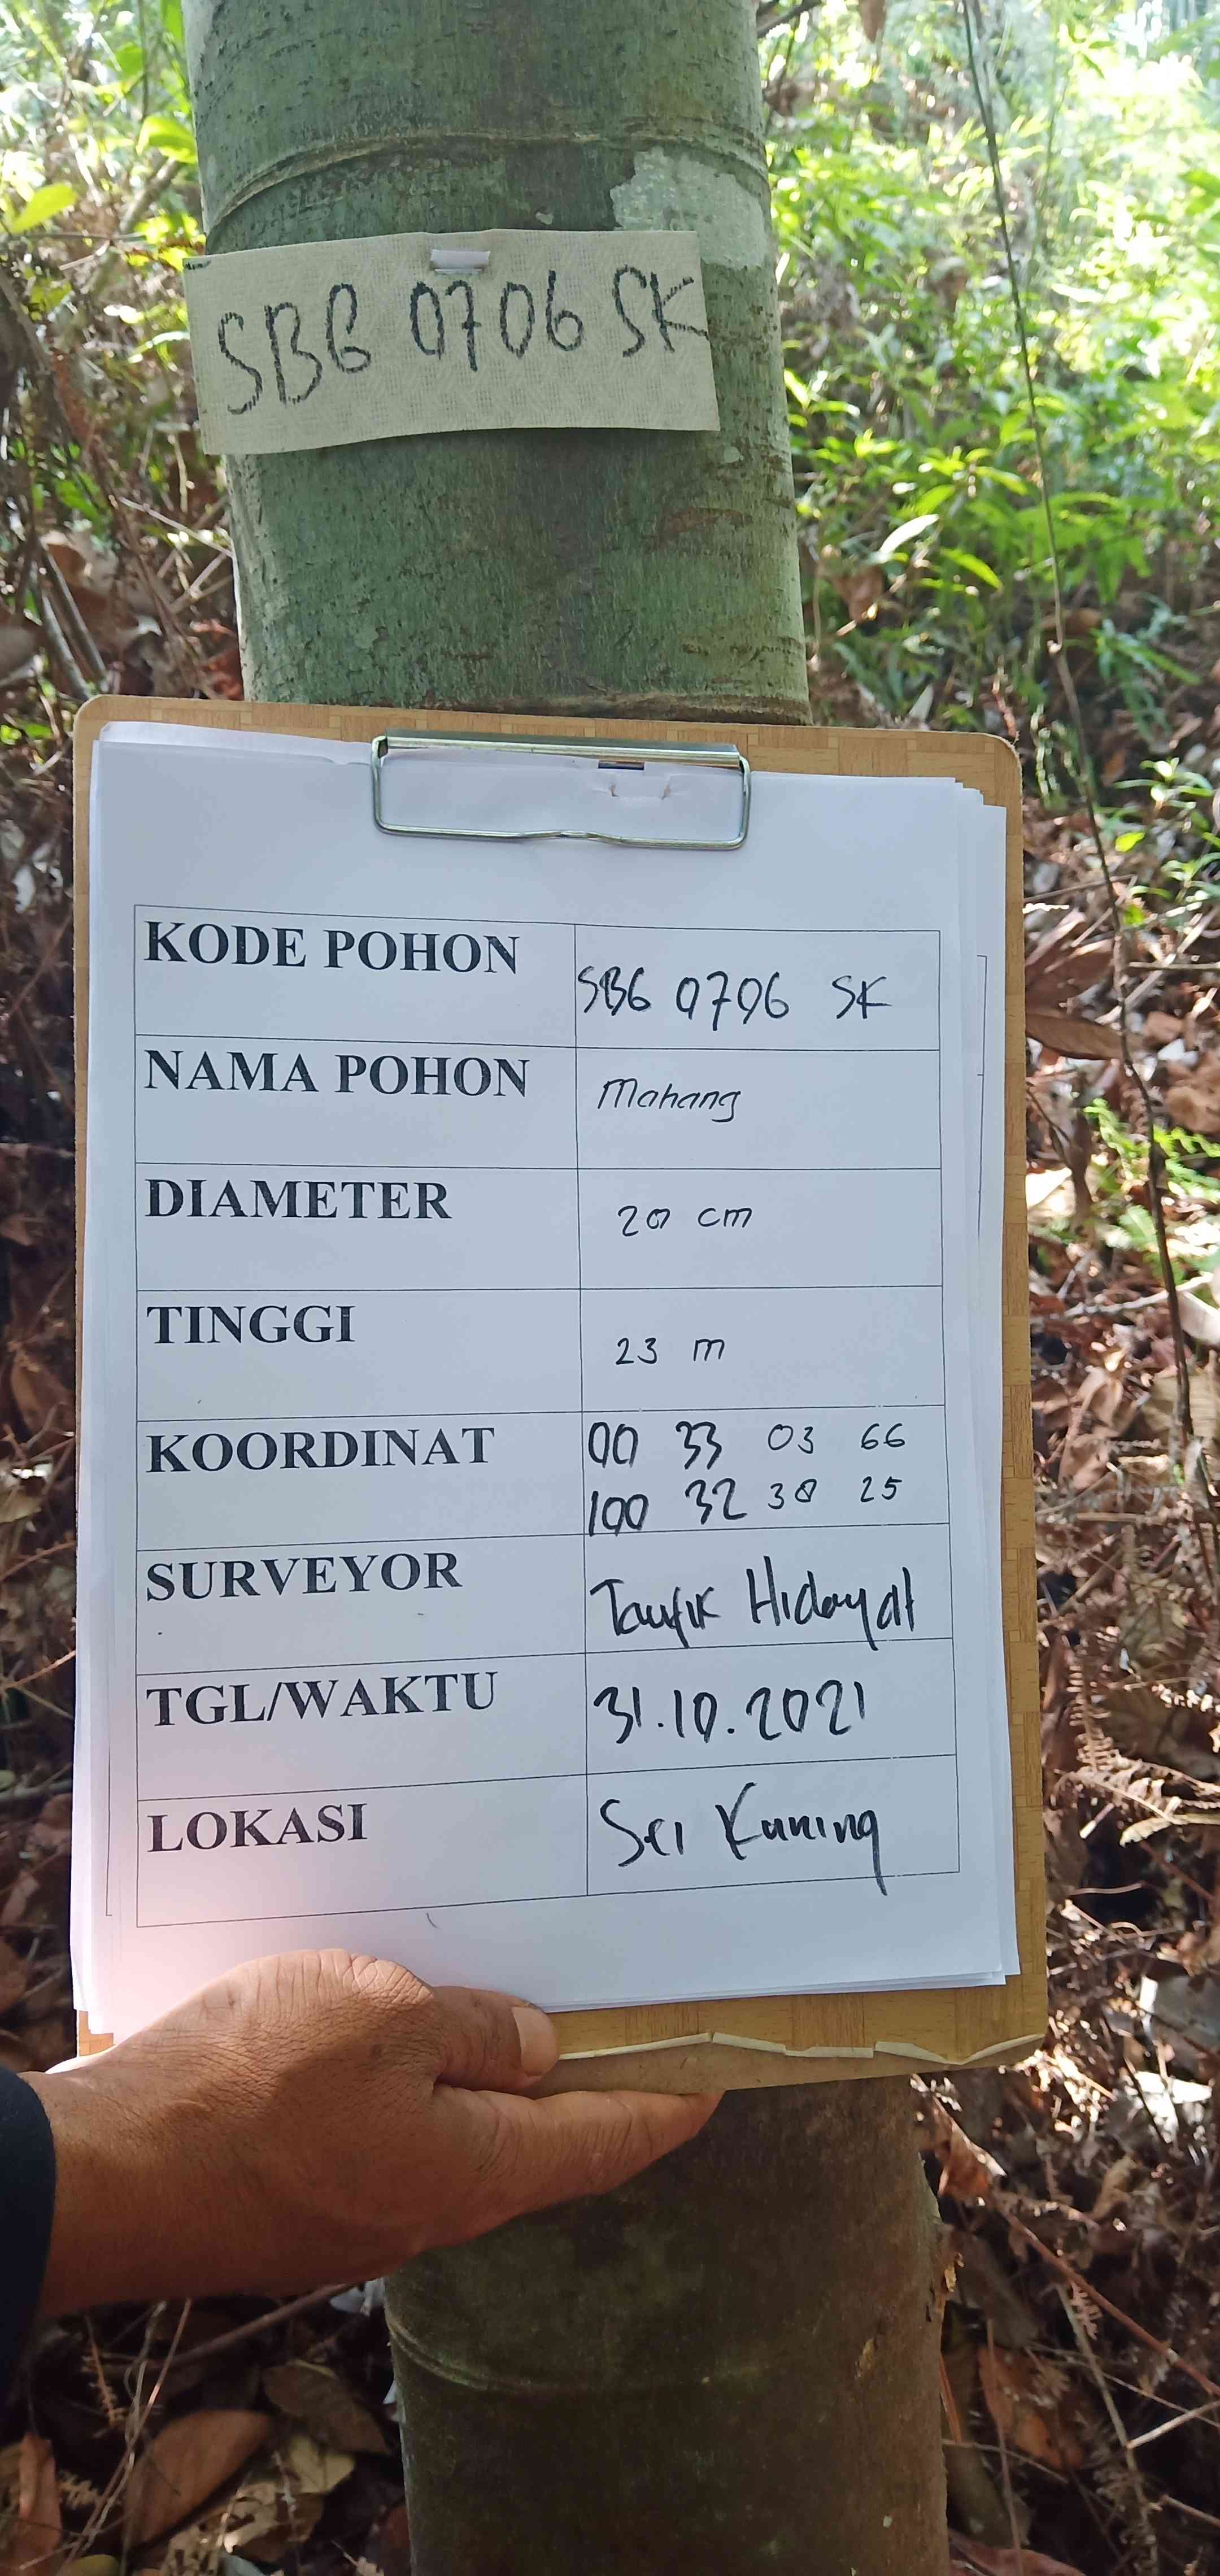 SBG 0706 SK
KODE POHON SBG 0706 SK
NAMA POHON Mahang
DIAMETER 20 cm
TINGGI 23 m
KOORDINAT 00 33 03 66
100 32 30 25
SURVEYOR Taufik Hidayat
TGL/WAKTU 31.10.2021
LOKASI Sri Kuning